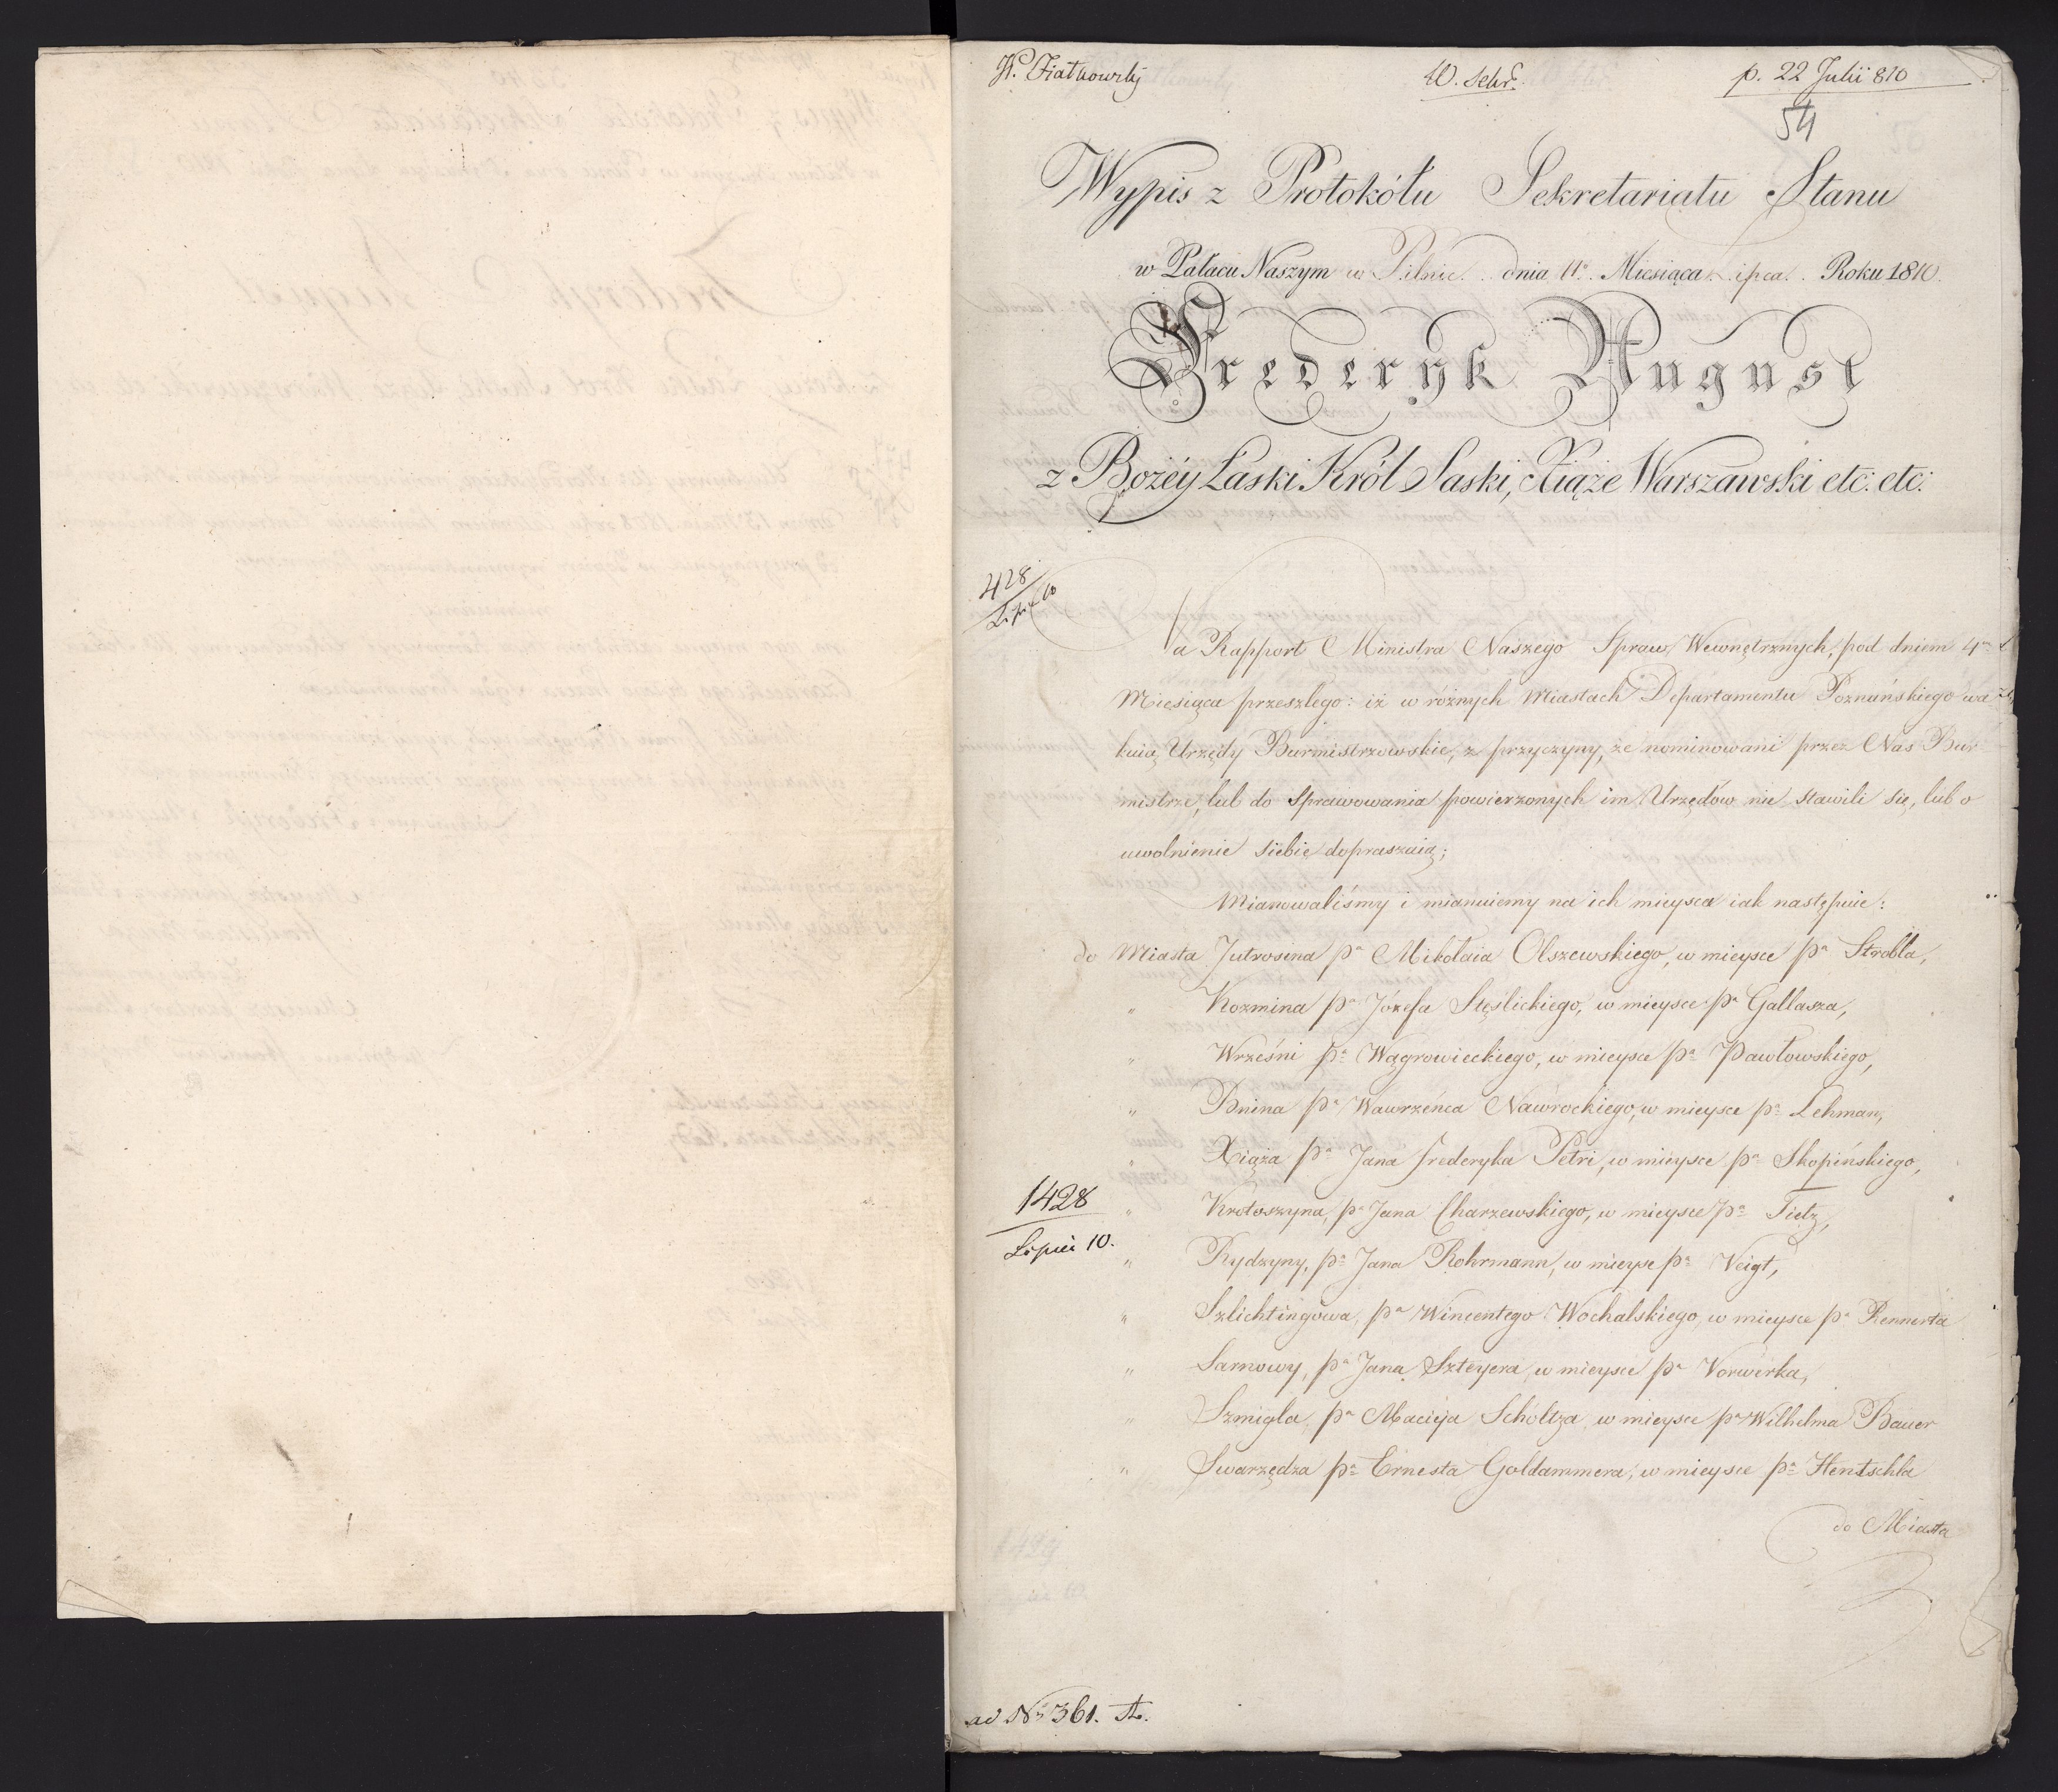 W. Sekr.
p. 22 Julii 810
54
Wypis z Protokółu Sekretariatu Stanu
w Pałacu Naszym w Pilnic dnia 11º Miesiąca Lipca Roku 1810.
Frederyk August
z Bożéy Łaski Król Saski, Xiąże Warszawski etc: etc:
428
Lipca 10
Na Rapport Ministra Naszego Spraw Wewnętrznych, pod dniem 4
Miesiąca przeszłego: iż w różnych Miastach Departamentu Poznańskiego wa
kuią Urzędy Burmistrzowskie, z przyczyny, że nominowani przez Nas Bur
mistrze, lub do sprawowania powierzonych im Urzędów nie stawili się, lub o
uwolnienie siebie dopraszaią;
Mianowaliśmy i mianuiemy na ich mieysca iak następuie:
do Miasta Jutrosina pª Mikołaia Olszewskiego, w mieysce pª Strobla,
" Kozmina pª Józefa Stęślickiego, w mieysce pª Gallasza,
" Wrześni pª Wągrowieckiego, w mieysce pª Pawłowskiego,
" Bnina pª Wawrzeńca Nawrockiego, w mieysce pª Lehman,
" Xiąża pª Jana Frederyka Petri, w mieysce pª Skopińskiego,
1428
Lipca 10.
" Krotoszyna, pª Jana Charzewskiego, w mieysce pª Tietz,
" Rydzyny, pª Jana Rohrmann, w mieysce pª Veigt,
" Szlichtingowa, pª Wincentego Wochalskiego, w mieysce pª Rennerta
" Sarnowy, pª Jana Szteyera, w mieysce pª Vorwerka,
" Szmigla, pª Macieja Scholtza, w mieysce pª Wilhelma Bauer
" Swarzędza pª Ernesta Goldammera, w mieysce pª Hentschla
do Miasta
ad Nº 361.